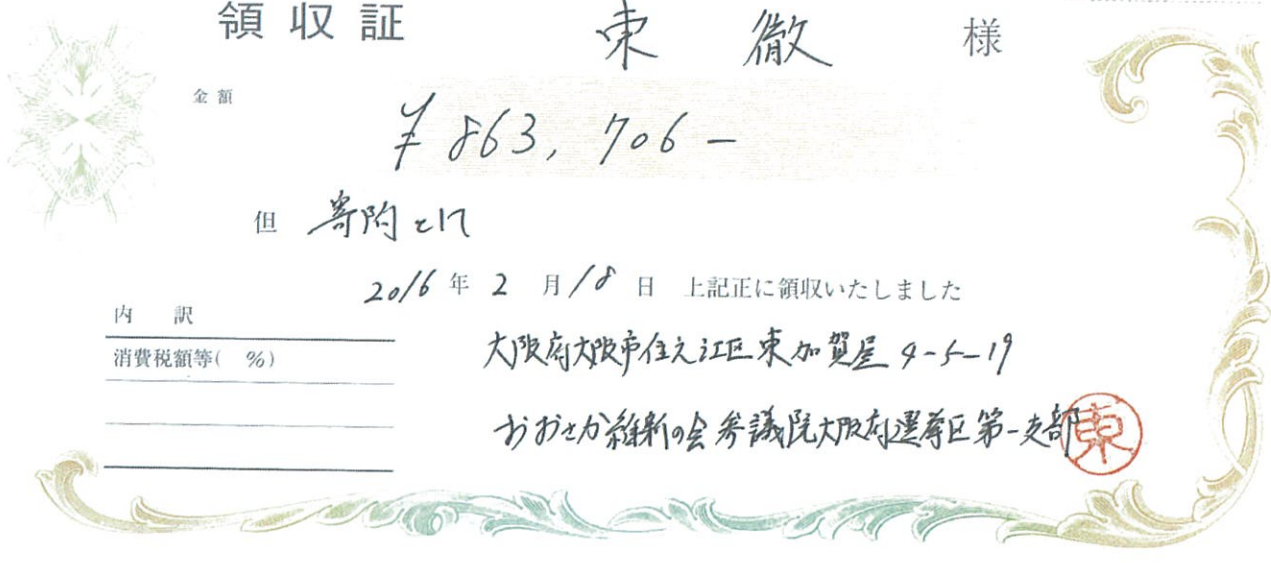 領収証 東 徹 様
金額
¥863,706-
但 寄附として
2016年2月18日 上記正に領収いたしました
内訳
消費税額等( %)
大阪府大阪市住之江区東加賀屋4-5-19
おおさか維新の会参議院大阪府選挙区第一支部
東